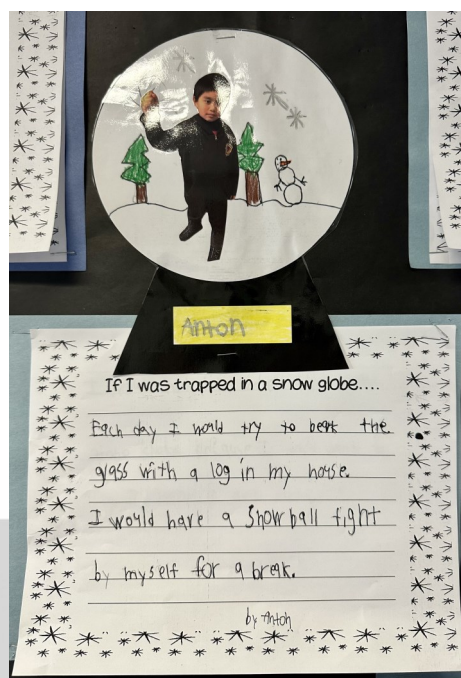 Anton
If I was trapped in a snow globe....
Each day I would try to beat the
glass with a log in my house.
I would have a snowball fight
by myself for a break.
by Anton